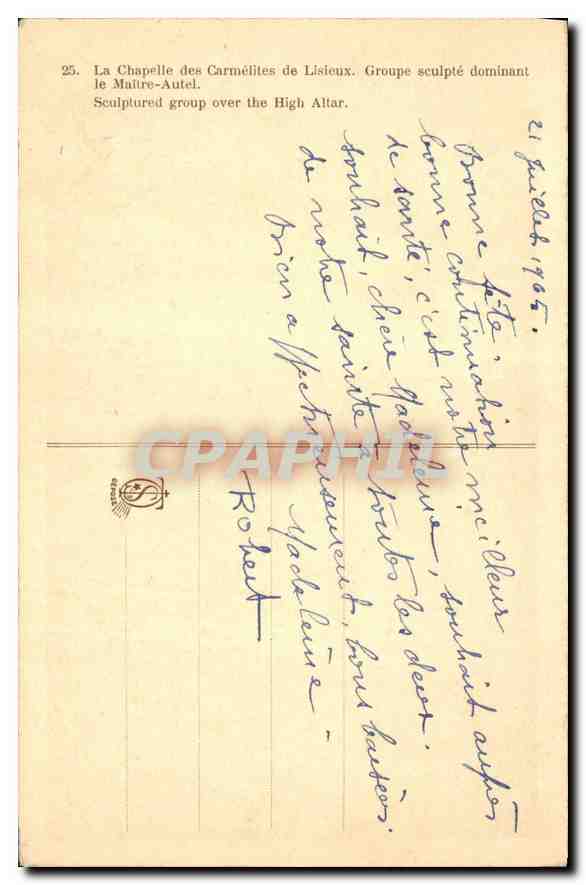 25. La Chapelle des Carmélites de Lisieux. Groupe sculpté dominant
le Maître-Autel.
Sculptured group over the High Altar.
21 Juillet 1965.
Bonne fête.
bonne continuation
de santé, c'est notre meilleur
souhait, chère Madeleine, souhait auprès
de notre sainte à toutes les deux.
Bien affectueusement, bons baisers.
Madeleine -
Robert
CPAPHIL
DÉPOSÉ